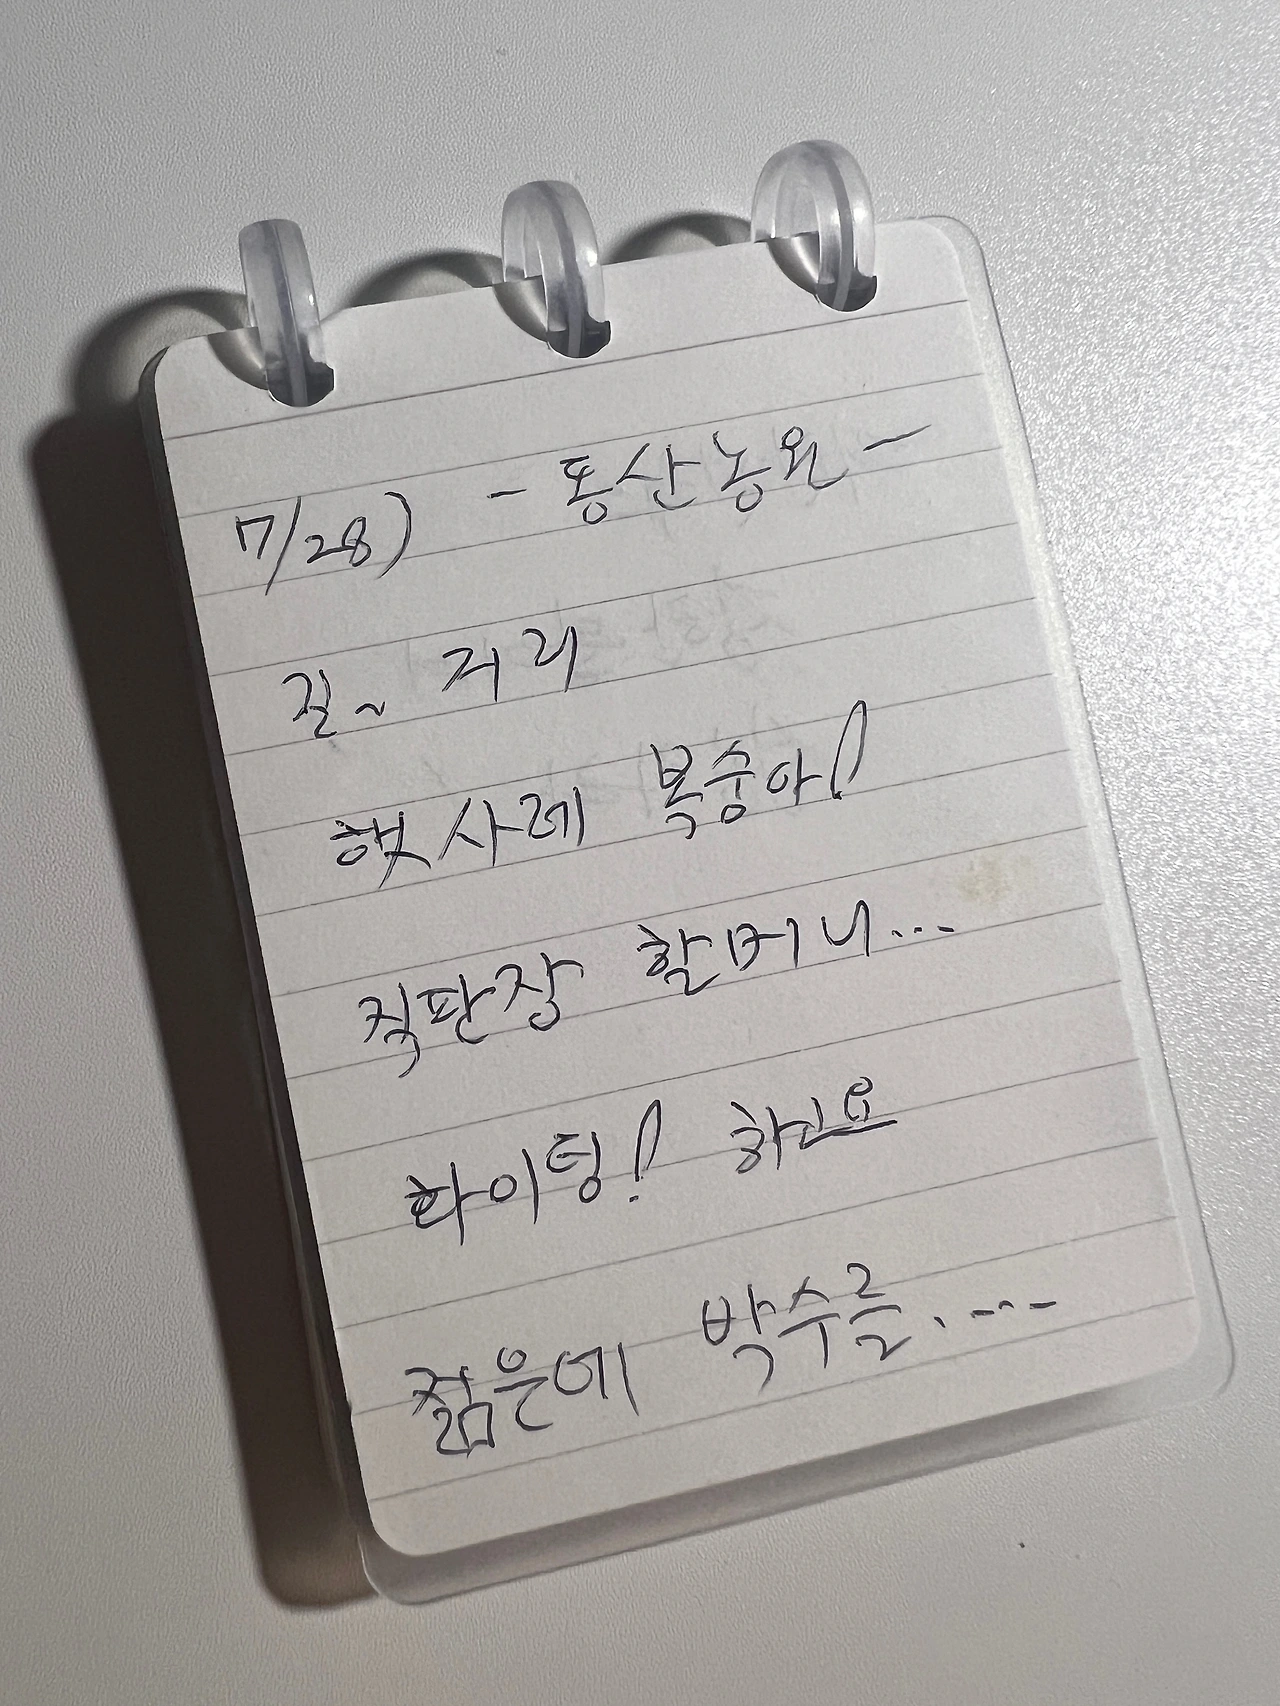 7/28) - 동산농원 -
길~ 거리
햇사레 복숭아!
직판장 할머니...
화이팅! 하고요
젊은에 박수를.....